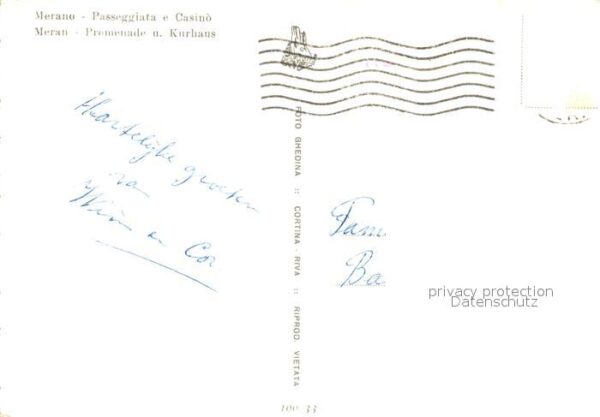 Merano - Passeggiata e Casinò
Meran - Promenade u. Kurhaus
Hartelijke groeten
van
Wim en Cor
FOTO GHEDINA :: CORTINA - RIVA :: RIPROD. VIETATA
Fam
Ba
privacy protection
Datenschutz
100 33